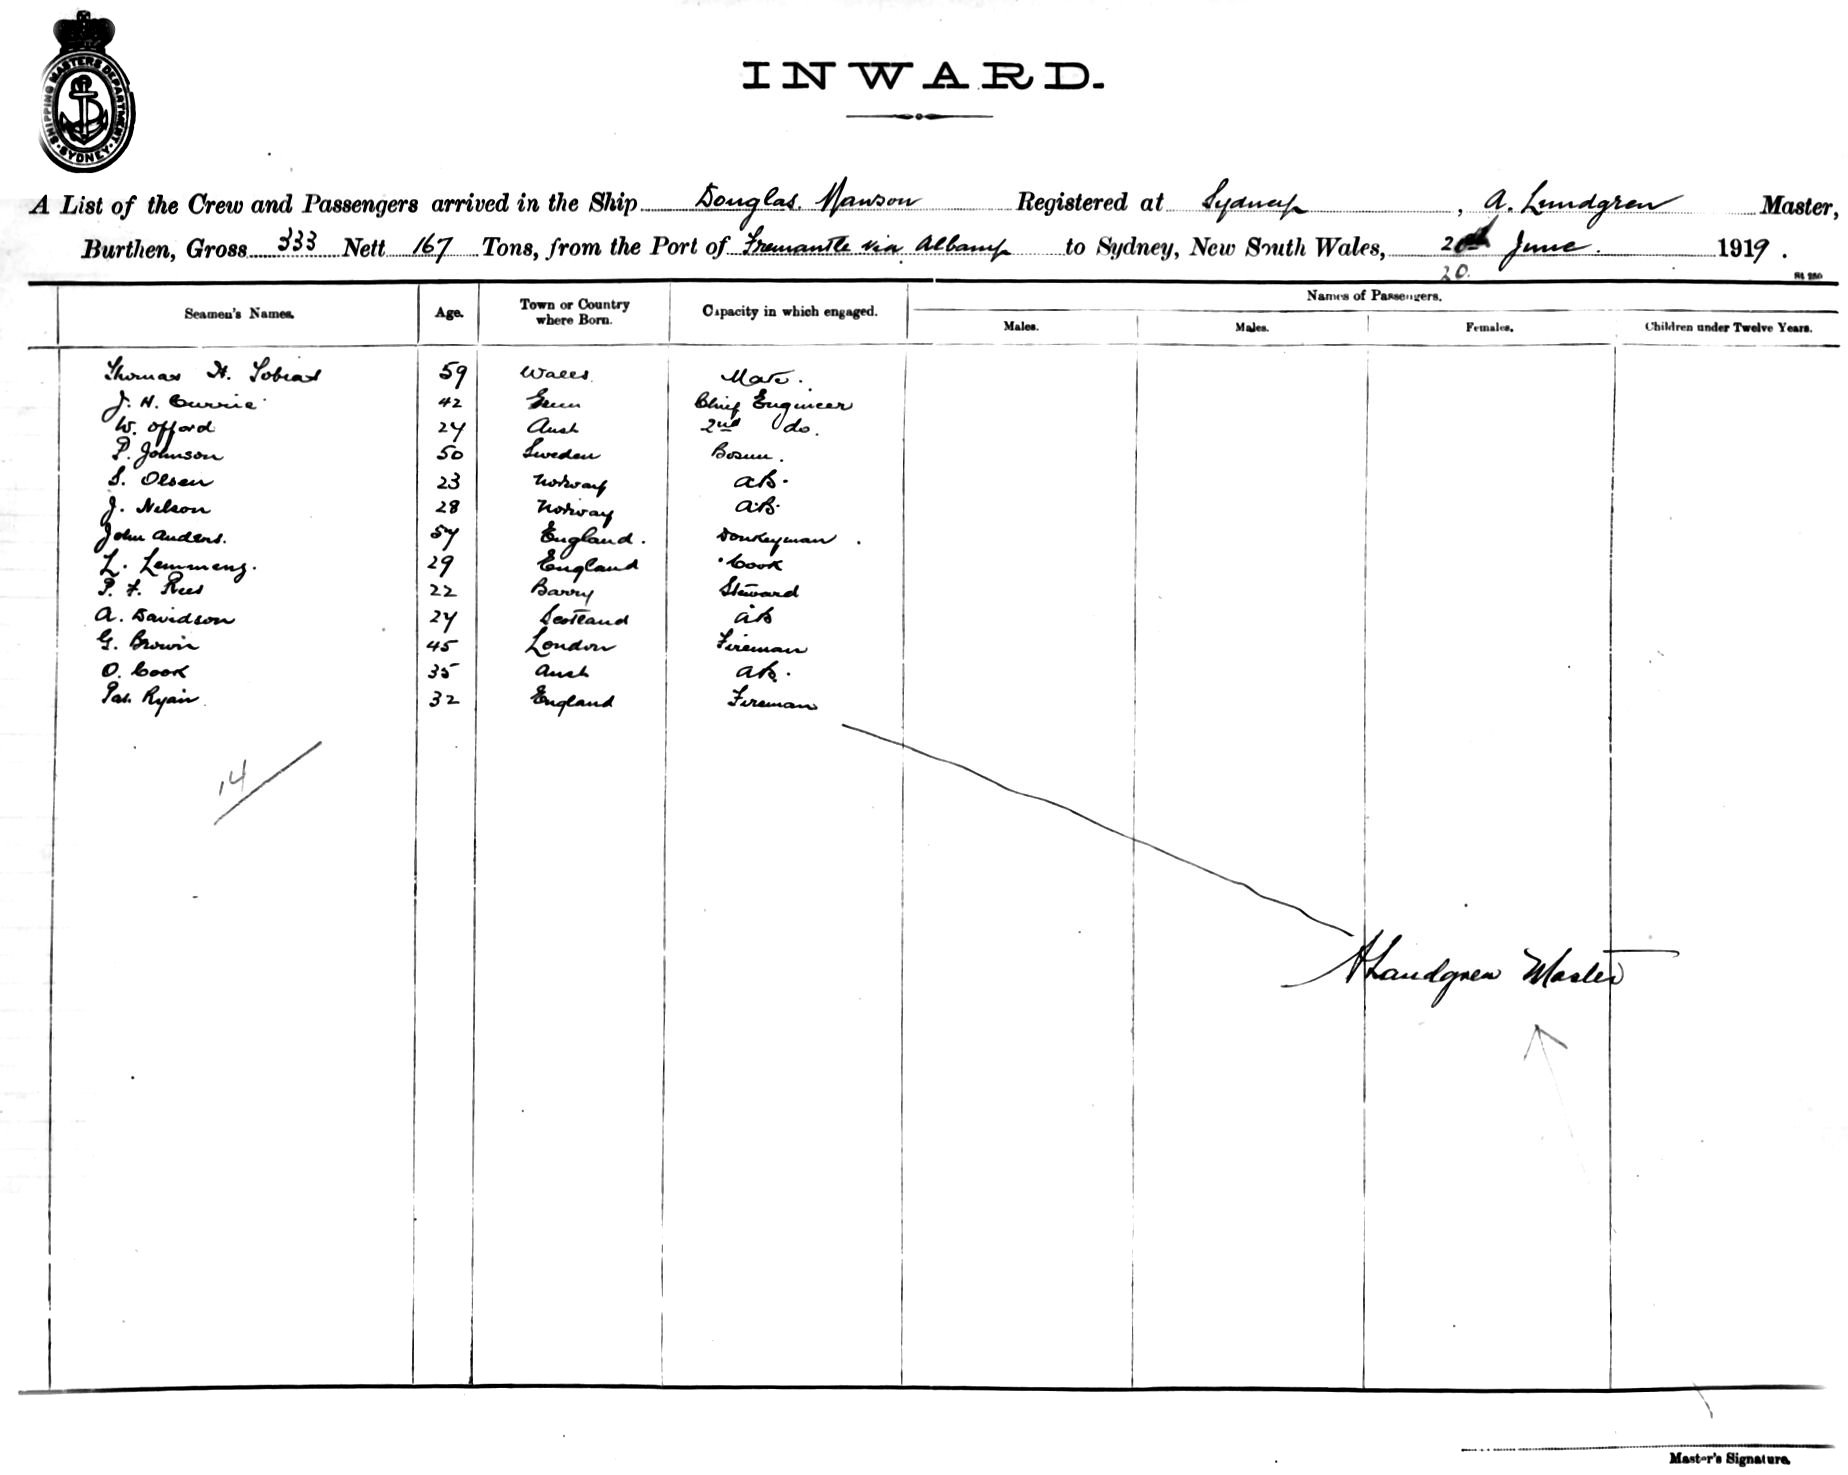 SHIPPING MASTERS DEPARTMENT
SYDNEY
INWARD.
A List of the Crew and Passengers arrived in the Ship Douglas Mawson Registered at Sydney, A. Lundgren Master,
Burthen, Gross 333 Nett 167 Tons, from the Port of Fremantle via Albany to Sydney, New South Wales, 20th June 1919.
20.
Seamen's Names. Age. Town or Country where Born. Capacity in which engaged. Names of Passengers.
Males. Males. Females. Children under Twelve Years.
Thomas H. Tobias 59 Wales Mate.
J. H. Currie 42 Chief Engineer
W. Offord 24 Aust 2nd do.
P. Johnson 50 Sweden Bosun.
S. Olsen 23 Norway AB.
J. Nelson 28 Norway AB.
John Anders. 54 England. Donkeyman.
L. Lemmens. 29 England Cook
P. F. Rees 22 Barry Steward
A. Davidson 24 Scotland AB
G. Brown 45 London Fireman
O. Cook 35 Aust AB.
Pat. Ryan 32 England Fireman
14
A Lundgren Master
Master's Signature.